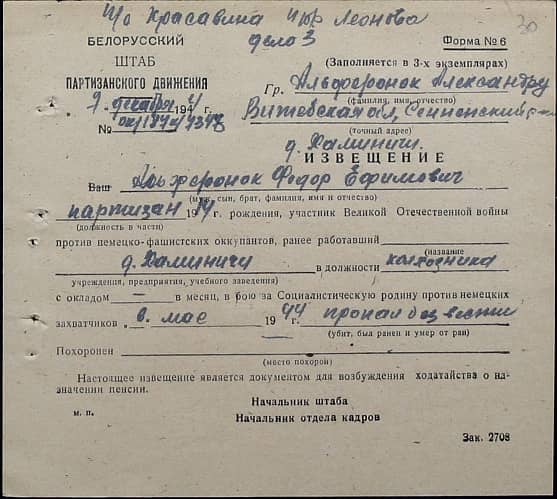 п/о Красавина п/р Леонова
дело 3
30
БЕЛОРУССКИЙ
ШТАБ
ПАРТИЗАНСКОГО ДВИЖЕНИЯ
9 декабря 1944 г.
№
Форма № 6
(Заполняется в 3-х экземплярах)
Гр. Альферонок Александру
(фамилия, имя, отчество)
Витебская обл, Сенненский р-н
(точный адрес)
д. Калиничи.
ИЗВЕЩЕНИЕ
Ваш Альферонок Федор Ефимович
(муж, сын, брат, фамилия, имя и отчество)
партизан 19 г. рождения, участник Великой Отечественной войны
(должность в части)
против немецко-фашистских оккупантов, ранее работавший
(название
д. Калиничи в должности колхозника
учреждения, предприятия, учебного заведения)
с окладом — в месяц, в бою за Социалистическую родину против немецких
захватчиков в мае 1944 г. пропал без вести
(убит, был ранен и умер от ран)
Похоронен
(место похорон)
Настоящее извещение является документом для возбуждения ходатайства о на-
значении пенсии.
Начальник штаба
м. п.
Начальник отдела кадров
Зак. 2708